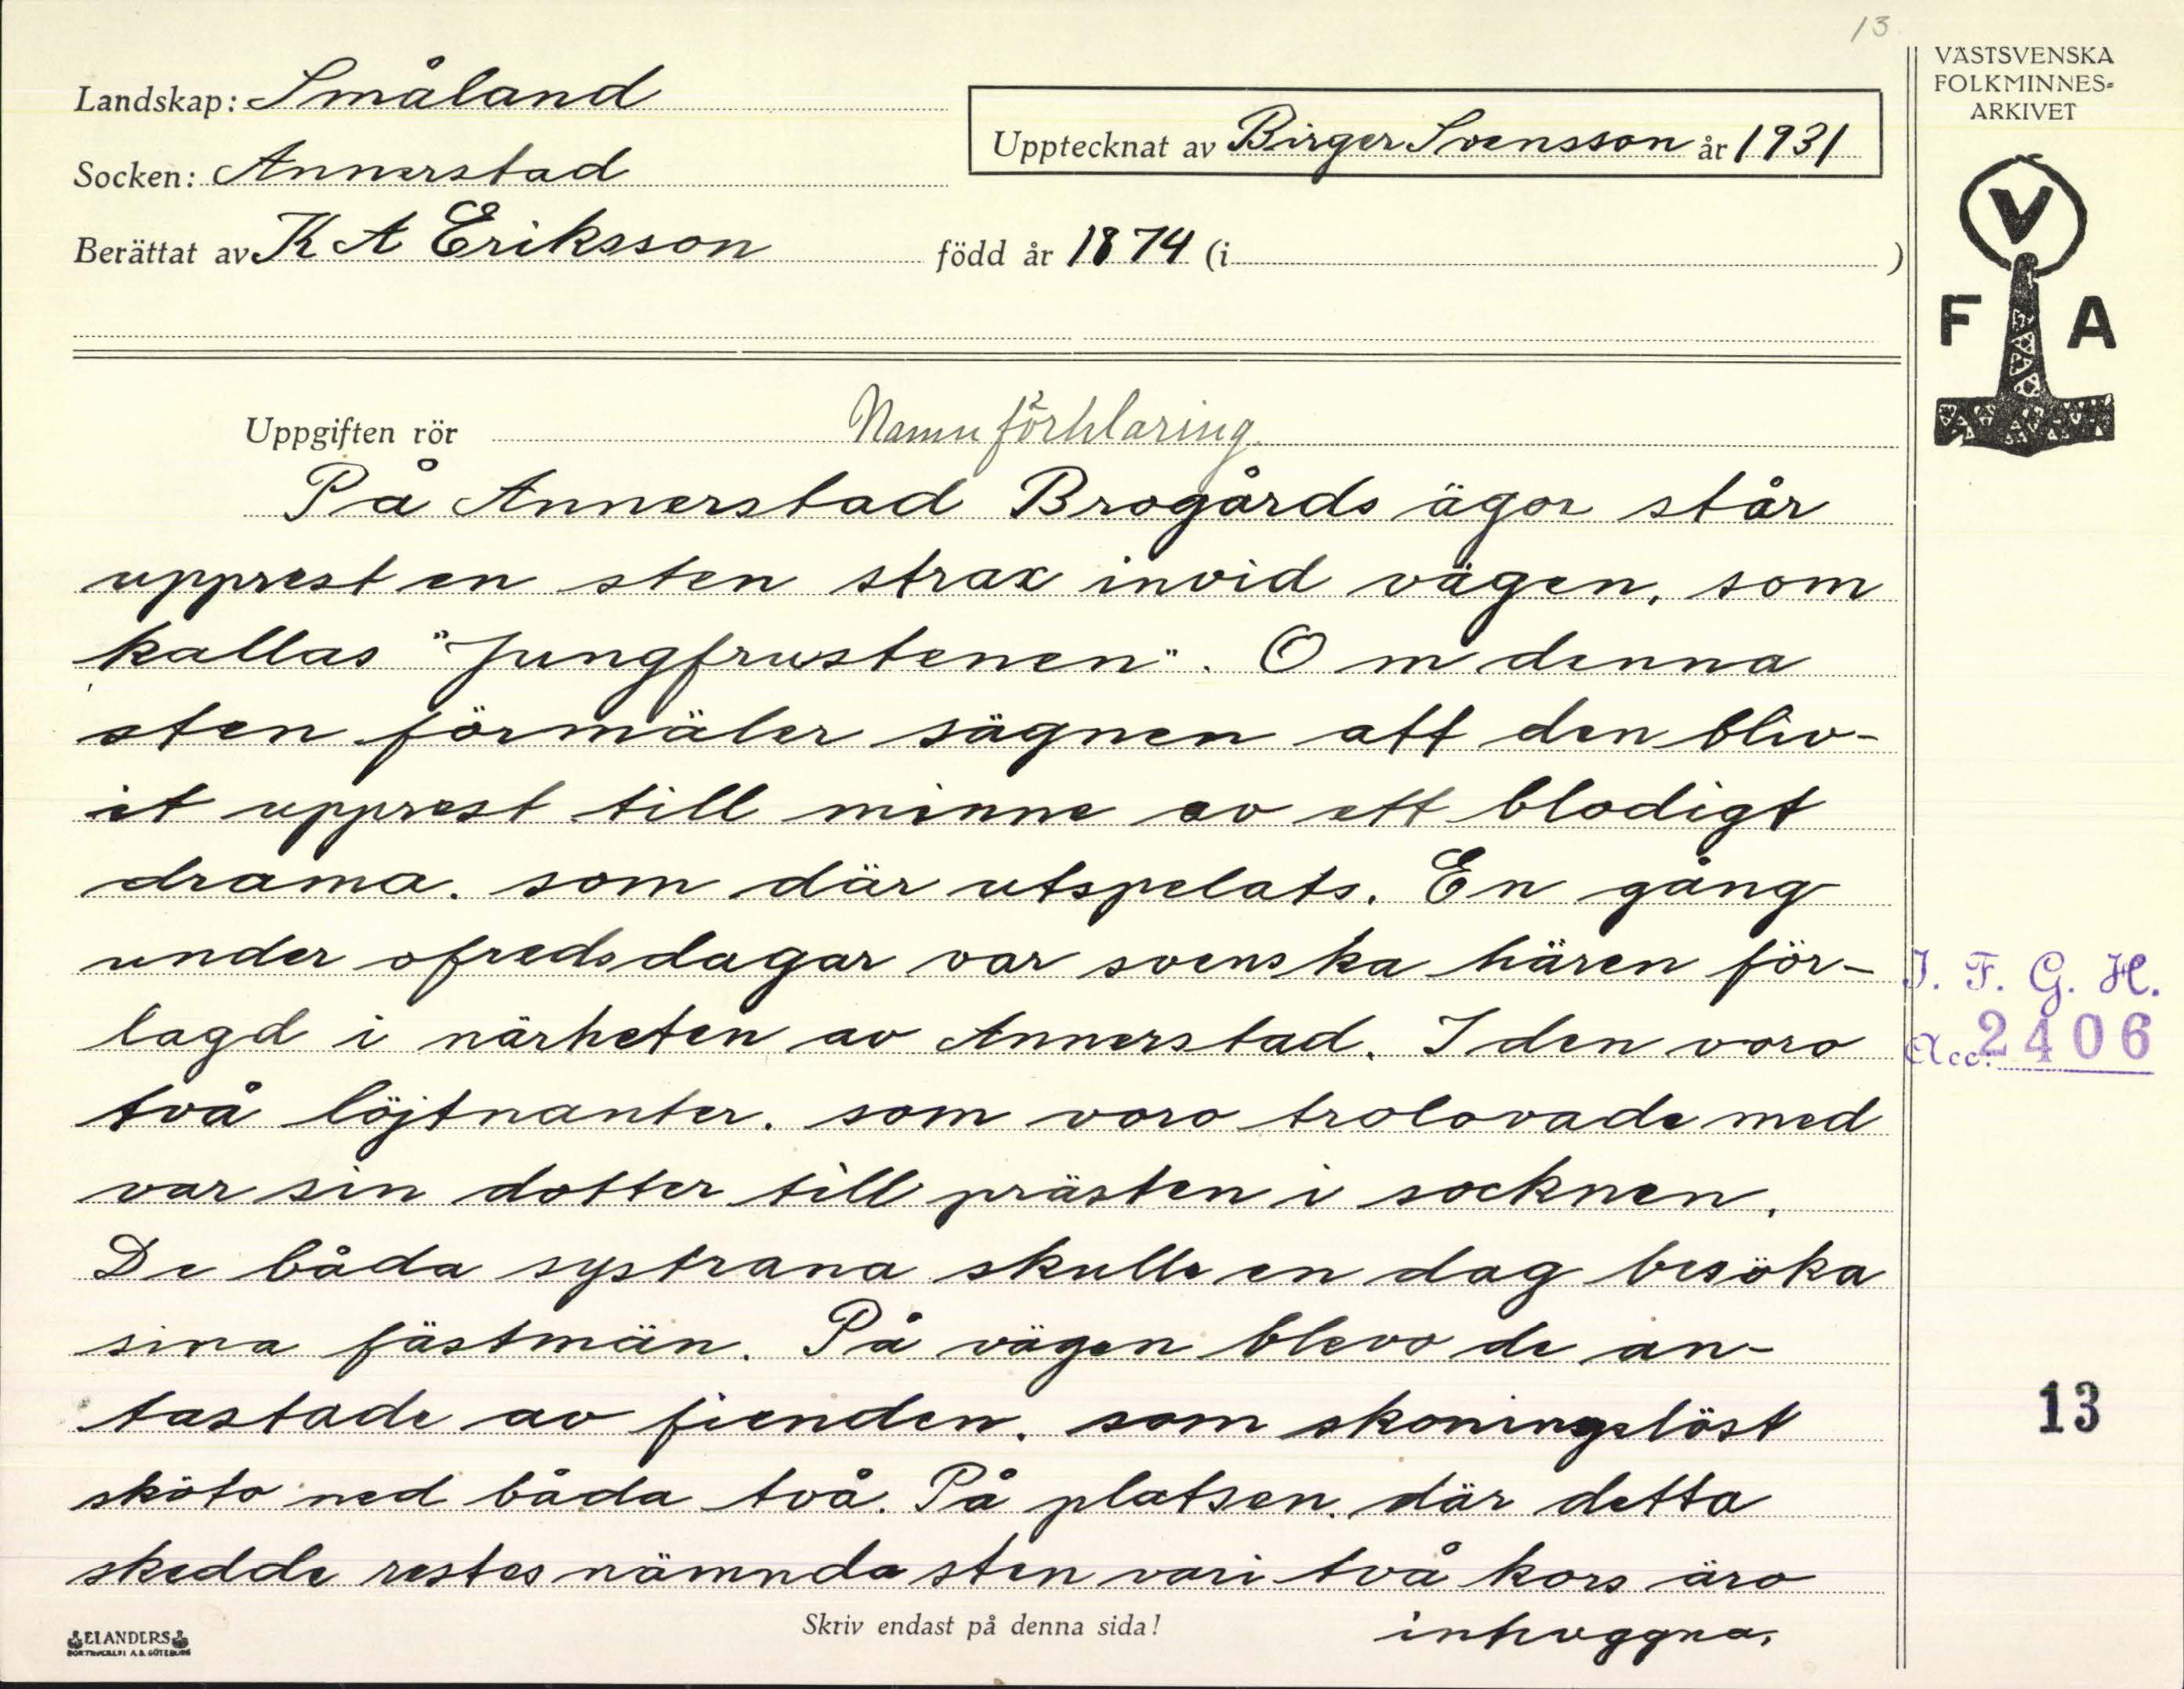 13
Landskap: Småland
Socken: Annerstad
Berättat av K A Eriksson född år 1874 (i )
Upptecknat av Birger Svensson år 1931
VÄSTSVENSKA
FOLKMINNES-
ARKIVET
V
F A
Uppgiften rör Namnförklaring.
På Annerstad Brogårds ägor står
upprest en sten strax invid vägen, som
kallas "Jungfrustenen". Om denna
sten förmäler sägnen att den bliv-
it upprest till minne av ett blodigt
drama. som där utspelats. En gång
under ofredsdagar var svenska hären för-
lagd i närheten av Annerstad. I den voro
två löjtnanter. som voro trolovade med
var sin dotter till prästen i socknen.
De båda systrana skulle en dag besöka
sina fästmän. På vägen blevo de an-
tastade av fienden. som skoningslöst
sköto ned båda två. På platsen. där detta
skedde restes nämnda sten vari två kors äro
inhuggna.
I. F. G. H.
Acc. 2406
13
Skriv endast på denna sida!
ELANDERS
BOKTRYCKERI A.B. GÖTEBORG